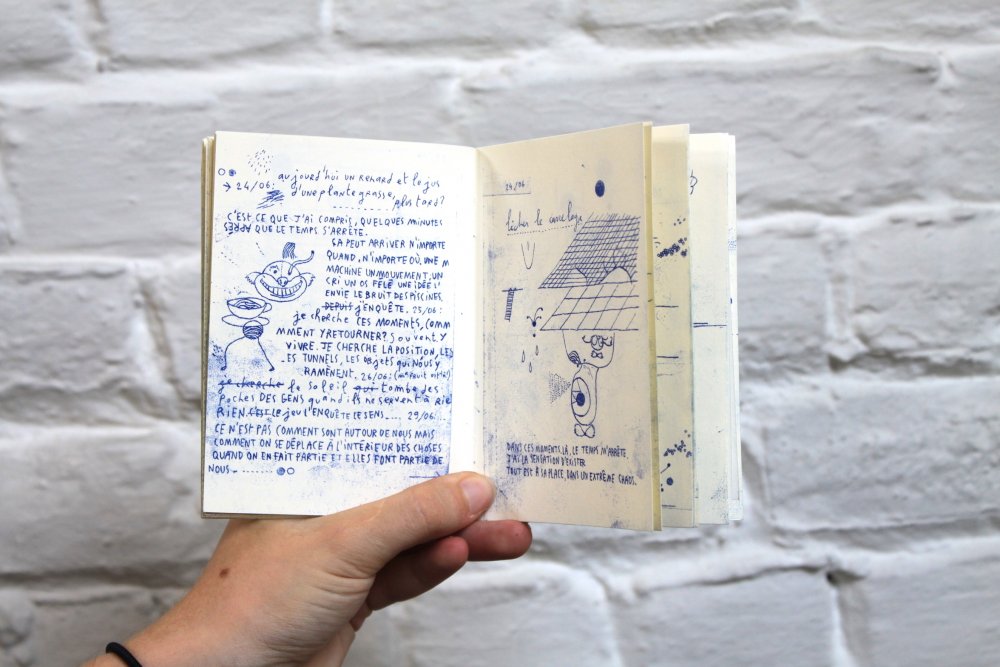 aujourd'hui un renard et le jus
→ 24/06: d'une plante grasse, plus tard?
C'EST CE QUE J'AI COMPRIS, QUELQUES MINUTES
APRÈS QUE LE TEMPS S'ARRÊTE.
ÇA PEUT ARRIVER N'IMPORTE
QUAND, N'IMPORTE OÙ, UNE M
MACHINE UN MOUVEMENT, UN
CRI UN OS FÊLÉ UNE IDÉE L'
ENVIE LE BRUIT DES PISCINES.
DEPUIS J'ENQUÊTE. 25/06:
je cherche CES MOMENTS, COMM
MMENT Y RETOURNER? Souvent Y
VIVRE. JE CHERCHE LA POSITION, LES
ES TUNNELS, LES objets qui NOUS Y
RAMÈNENT. 26/06:
je cherche le soleil qui tombe des
poches DES GENS quand ils ne servent à RIE
RIEN. C'EST LE jeu L'ENQUÊTE LE SENS.... 29/06...
CE N'EST PAS COMMENT SONT AUTOUR DE NOUS MAIS
COMMENT ON SE DÉPLACE À L'INTÉRIEUR DES CHOSES
QUAND ON EN FAIT PARTIE ET ELLES FONT PARTIE DE
NOUS.........
24/06.
lécher le carrelage
DANS CES MOMENTS LÀ, LE TEMPS M'ARRÊTE.
J'AI LA SENSATION D'EXISTER.
TOUT EST À SA PLACE, DANS UN EXTRÊME CHAOS.